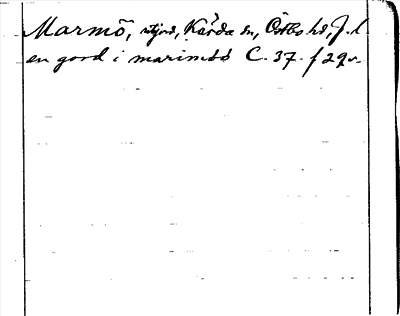 Marmö, utjord, Kärda sn, Östbo hd, J. l.
en gord i marimöö C. 37. f 29 v.